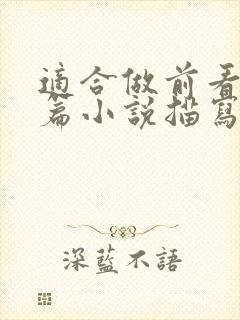 適合做前看
篇小說描寫
深藍不語